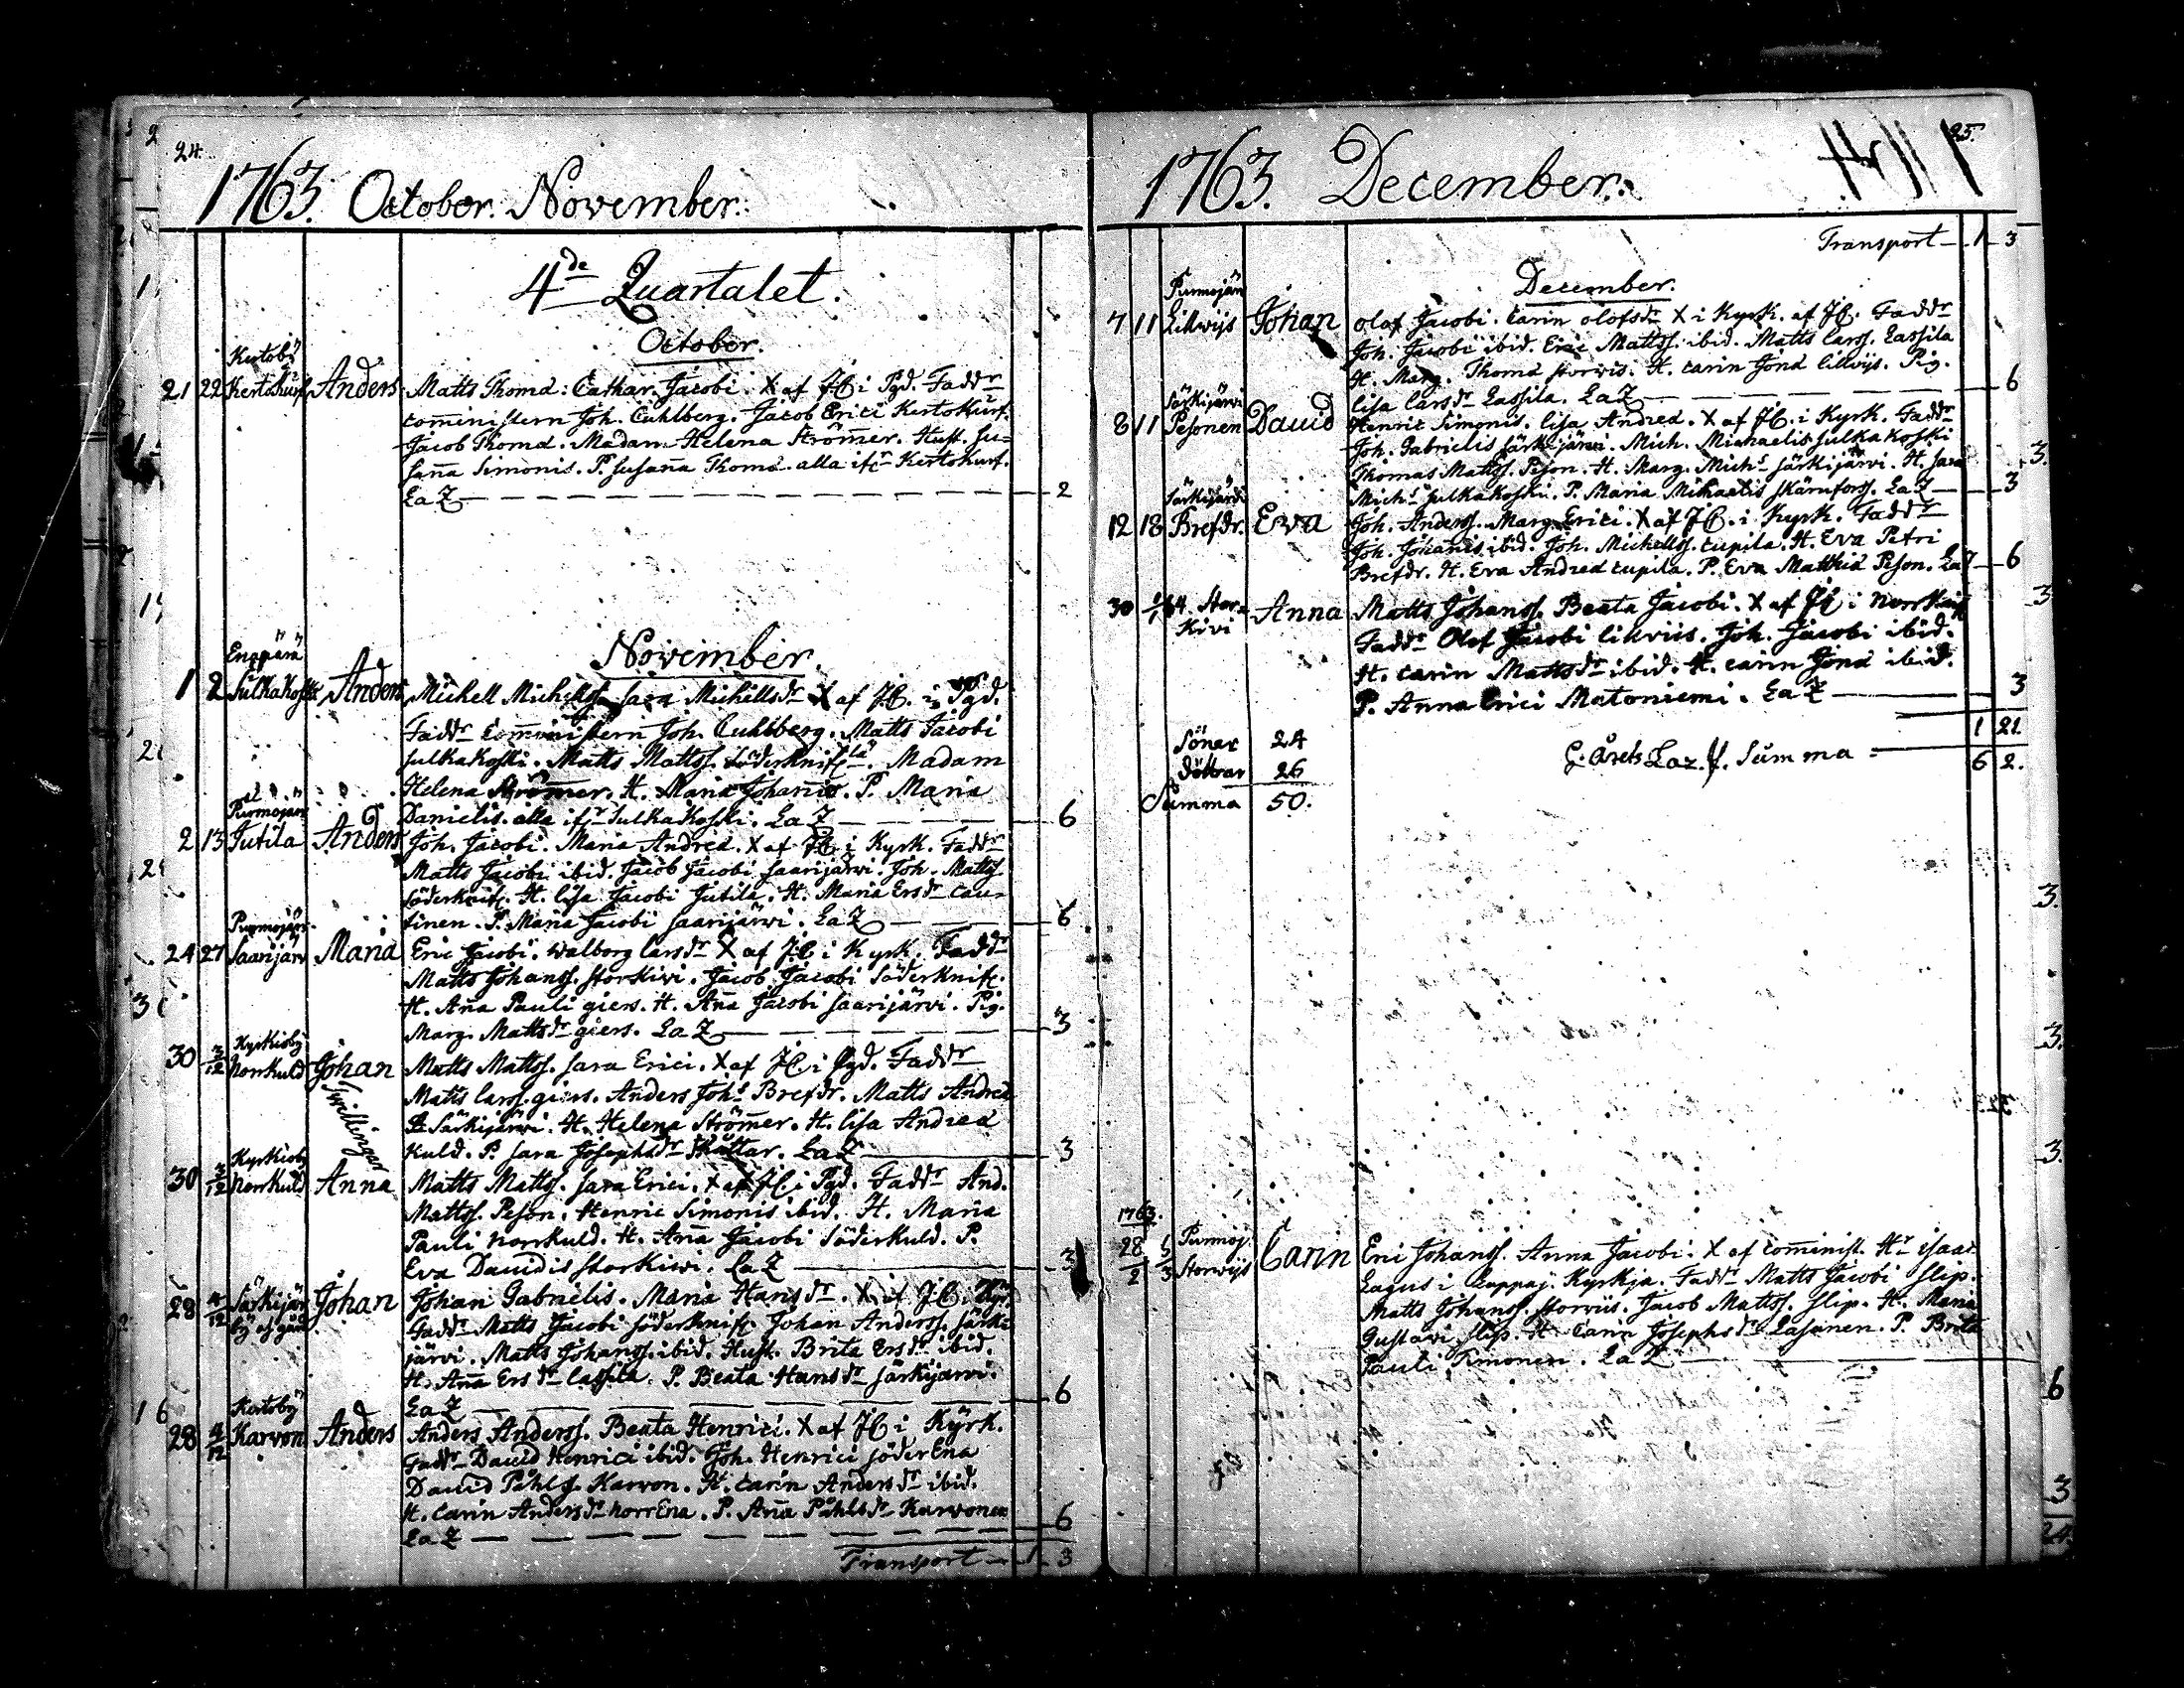 24.
1763. October. November.
4de Quartalet.
October.
Kertoby
21 22 Anders Matts Thomæ: Cathar. Jacobi. X af JC i Pgd. Faddr
Comministern Joh. Cuhlberg. Jacob Erici Kertokurf.
Jacob Thomæ. Madam Helena Strömer. Hust. Su=
sana Simonis. P. Susana Thomæ alla ifr Kertokurf.
LaZ 2
November.
Enspärä
1 2 Sulkakoski Anders Michell Michellss. Sara Michellsdr X af JC. i Pgd.
Faddr Comministern Joh. Cuhlberg. Matts Jacobi
Sulkakoski. Matts Mattss. Söderknif. Madam
Helena Strömer. H. Maria Johannis. P. Maria
Danielis. alla ifr Sulkakoski. LaZ 6
Purmojär
2 13 Jutila Anders Joh. Jacobi. Maria Andreæ. X af JC i Kyrk. Faddr
Matts Jacobi ibid. Jacob Jacobi Saarijärvi. Joh. Mattss.
Söderknif. H. Lisa Jacobi Jutila. H. Maria Ersdr Cau-
tinen. P. Maria Jacobi Saarijärvi. LaZ 6
Purmojär.
24 27 Saarijär Maria Eric Jacobi. Walborg Larsdr X af JC i Kyrk. Faddr
Matts Johanss. Storkivi. Jacob Jacobi Söderknif.
H. Aña Pauli giers. H. Aña Jacobi Saarijärvi. Pig.
Marg. Mattsdr giers. LaZ 3
Kyrkioby
30 3/12 Norrkuld Johan Matts Mattss. Sara Erici. X af JC i Pgd. Faddr
Matts Larss. giers. Anders Johs Brefdr. Matts Andreæ
Särkijärvi. H. Helena Strömer. H. Lisa Andreæ
Kuld. P. Sara Josephsdr Skåttar. LaZ 3
Tvillingar
Kyrkioby
30 3/12 Norrkuld Anna Matts Mattss. Sara Erici. X af JC i Pgd. Faddr And.
Mattss. Peson. Henric Simonis ibid. H. Maria
Pauli Norrkuld. H. Aña Jacobi Söderkuld. P.
Eva Davidis Storkivi. LaZ 3
28 4/12 Särkijär Johan Johan Gabrielis. Maria Hansdr. X af JC.
Faddr Matts Jacobi Söderknif. Johan Anderss. Särki
järvi. Matts Johanss. ibid. Hust. Brita Ersdr ibid.
H. Aña Ersdr Lassila. P. Beata Hansdr Särkijärvi.
LaZ 6
Kertoby
28 4/12 Karvon Anders Anders Anderss. Beata Henrici. X af JC i Kyrk.
Faddr David Henrici ibid. Joh. Henrici Söder Ena
David Påhlss. Karvon. H. Carin Andersdr ibid.
H. Carin Andersdr Norr Ena. P. Aña Påhlsdr Karvonen
LaZ 6
Transport 1 3
25.
1763. December.
Transport 1 3
December.
Purmojär
7 11 Likvijs Johan Olof Jacobi. Carin Olofsdr X i Kyrk. af JC. Faddr
Joh. Jacobi ibid. Eric Mattss. ibid. Matts Larss. Lassila
H. Marg. Thomæ Storvis. H. Carin Jonæ Likvijs. Pig.
Lisa Larsdr Lassila. LaZ 6
Särkijärvi
8 11 Pesonen David Henric Simonis. Lisa Andreæ. X af JC. i Kyrk. Faddr
Joh. Gabrielis Särkijärvi. Mich. Michaelis Sulkakoski
Thomas Mattss. Peson. H. Marg. Michs Särkijärvi. H. Sara
Michs Sulkakoski. P. Maria Michaelis Skärnfors. LaZ 3
Särkijärvi
12 18 Brefdr. Eva Joh. Anderss. Marg. Erici. X af JC. i Kyrk. Faddr
Joh. Johanis ibid. Joh. Michellss. Cupila. H. Eva Petri
Brefdr. H. Eva Andreæ Cupila. P. Eva Matthiæ Peson. LaZ 6
30 Stor= Anna Matts Johanss. Beata Jacobi. X af JC i
Kivi Faddr Olof Jacobi Likviis. Joh. Jacobi ibid.
H. Carin Mattsdr ibid. H. Carin Jonæ ibid.
P. Anna Erici Matoniemi. LaZ 3
1 21
Söner 24
Döttrar 26
Summa 50.
Årets Laz. Summa 6 2.
1763.
28/2 5/3 Purmoj. Storwijs Carin Eric Johanss. Anna Jacobi. X af Cominist. Hr Isaac
Lagus i Lappaj. Kyrkja. Faddr Matts Jacobi Slip.
Matts Johanss. Storviis. Jacob Mattss. Slip. H. Maria
Gustavi Slip. H. Carin Josephsdr Lasanen. P. Brita
Pauli Timonen. LaZ 6